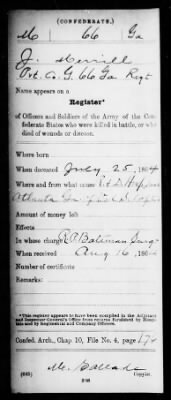 (CONFEDERATE.)
M 66 Ga
J. Merrill
Pvt. Co. G. 66 Ga Regt
Name appears on a
Register*
of Officers and Soldiers of the Army of the Confederate
States who were killed in battle, or who
died of wounds or disease.
Where born
When deceased July 25, 1864
Where and from what cause
Atlanta Ga
Amount of money left
Effects
In whose charge Bateman Surg
When received Aug 16, 1864
Number of certificates
Remarks:
*This register appears to have been compiled in the Adjutant
and Inspector-General's Office from returns furnished by Hospitals
and by Regimental and Company Officers.
Confed. Arch., Chap 10, File No. 4, page 174
Copyist.